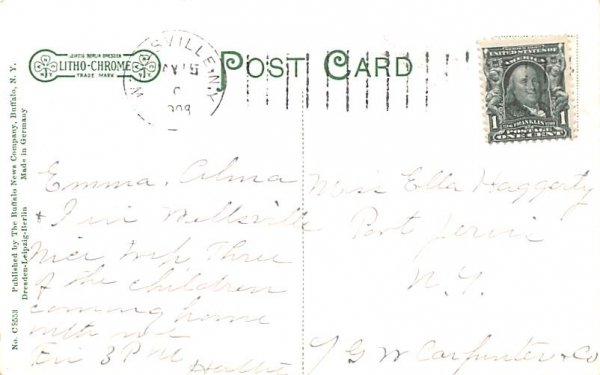 LEIPZIG BERLIN DRESDEN
LITHO-CHROME
TRADE MARK
POST CARD
SVILLE N.Y.
UNITED STATES OF
AMERICA
FRANKLIN
1 1
POSTAGE
ONE CENT
No. C8553 Published by The Buffalo News Company, Buffalo, N. Y.
Dresden-Leipzig-Berlin Made in Germany
Emma, Alma
+ I in Wellsville
Nice trip Three
of the children
coming home
with me
Fri 3 PM
Hallie
Miss Ella Haggerty
Port Jervis
N. Y.
℅ G W Carpenter & Co